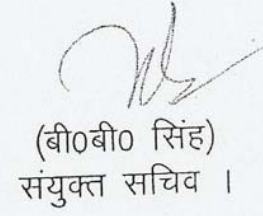 (बी0बी0 सिंह)
संयुक्त सचिव ।